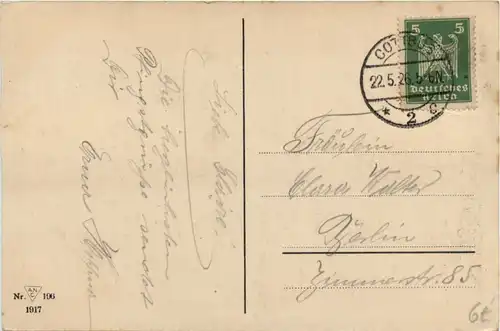 Liebe Kläre!
Die herzlichsten
Pfingstgrüße sendet
Dir
Fräulein
Clara Walter
Berlin
Zimmerstr. 85
5 5
Deutsches
Reich
22.5.26.
* 2 c
Nr. 196
1917
6€